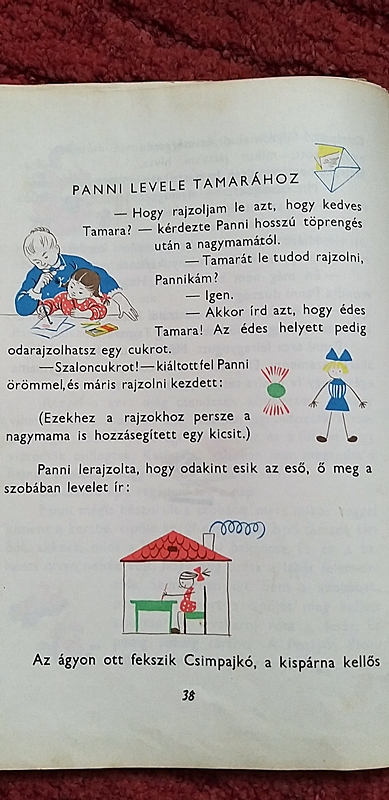 PANNI LEVELE TAMARÁHOZ
— Hogy rajzoljam le azt, hogy kedves
Tamara? — kérdezte Panni hosszú töprengés
után a nagymamától.
— Tamarát le tudod rajzolni,
Pannikám?
— Igen.
— Akkor írd azt, hogy édes
Tamara! Az édes helyett pedig
odarajzolhatsz egy cukrot.
— Szaloncukrot! — kiáltott fel Panni
örömmel, és máris rajzolni kezdett:
(Ezekhez a rajzokhoz persze a
nagymama is hozzásegített egy kicsit.)
Panni lerajzolta, hogy odakint esik az eső, ő meg a
szobában levelet ír:
Az ágyon ott fekszik Csimpajkó, a kispárna kellős
38